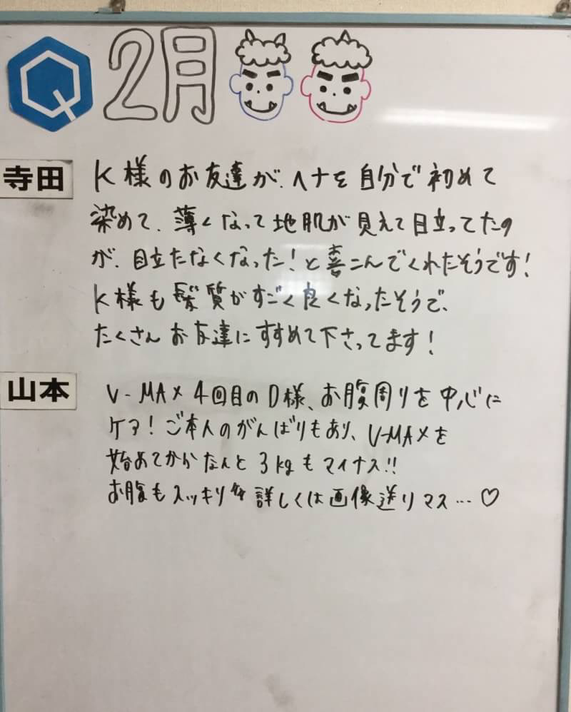 Q 2月
寺田
K様のお友達が、ヘナを自分で初めて
染めて、薄くなって地肌が見えて目立ってたの
が、目立たなくなった!と喜こんでくれたそうです!
K様も髪質がすごく良くなったそうで、
たくさんお友達にすすめて下さってます!
山本
V-MAX 4回目のD様、お腹周りを中心に
ケア!ご本人のがんばりもあり、V-MAXを
始めてからなんと3kgもマイナス!!
お腹もスッキリ 詳しくは画像送りマス…♡